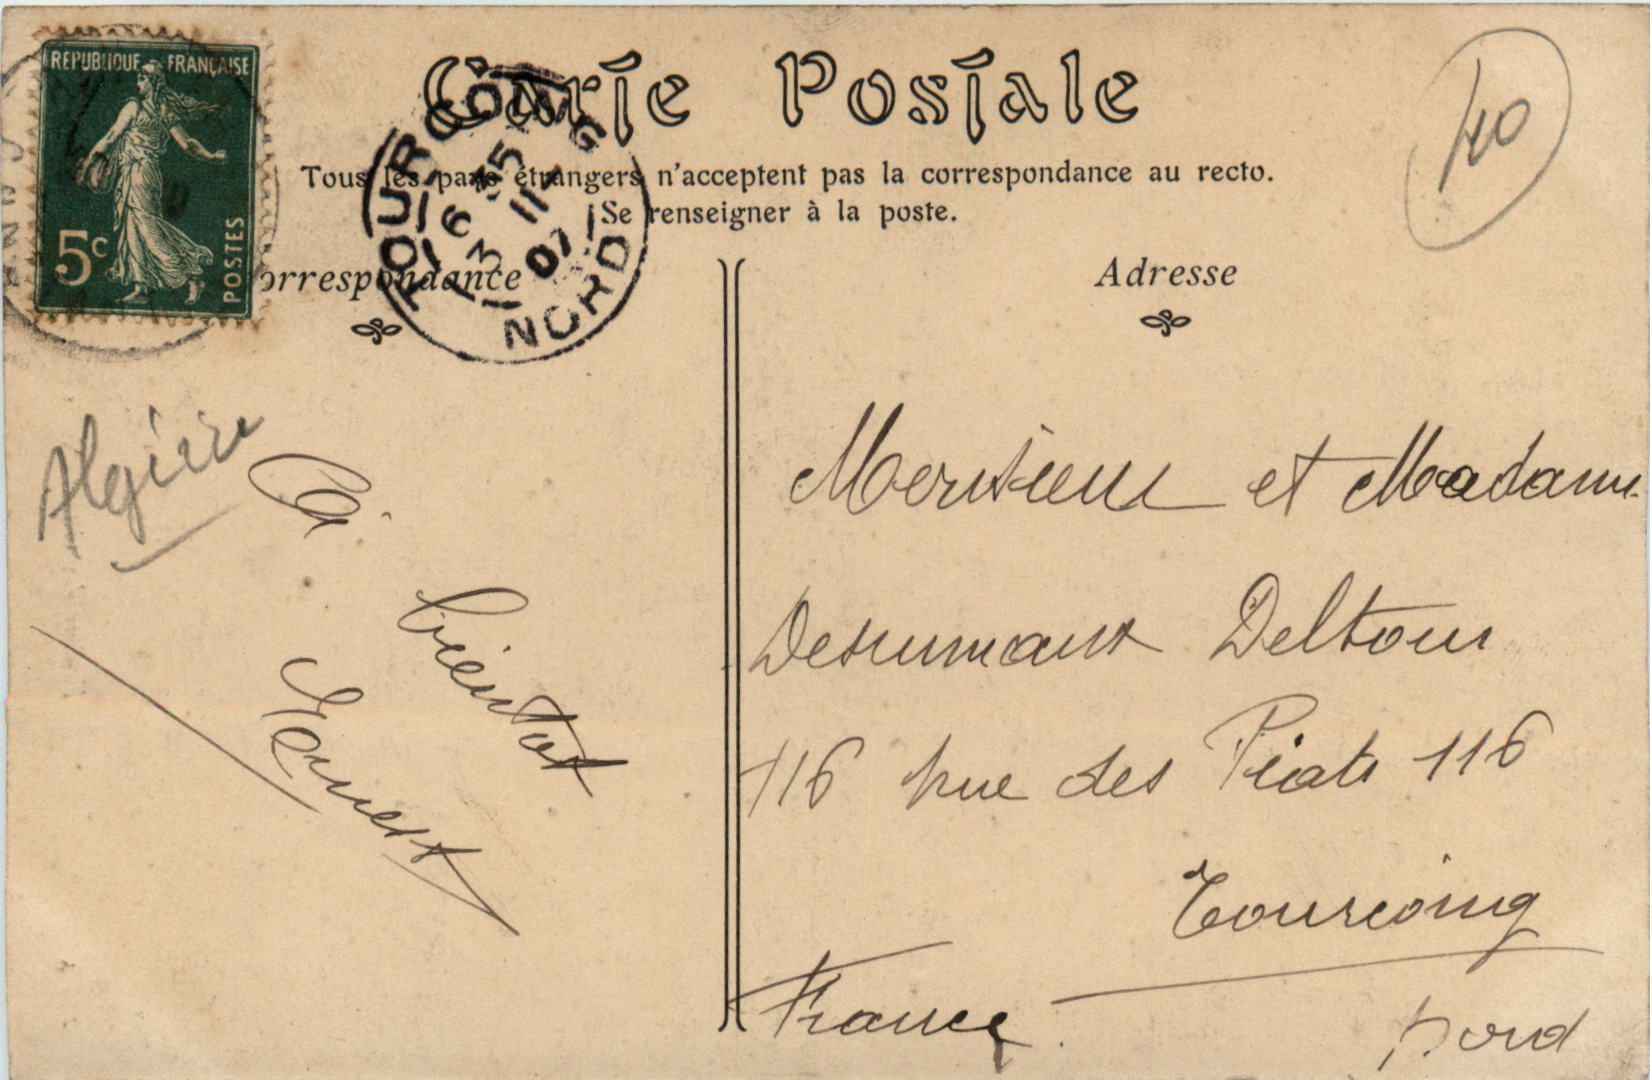 RÉPUBLIQUE FRANÇAISE
5c
POSTES
Carte Postale
Tous les pays étrangers n'acceptent pas la correspondance au recto.
Se renseigner à la poste.
TOURCOING
NORD
6 35
3 11
07
40
Correspondance
Adresse
Algérie
A bientot
Ernest
Monsieur et Madame
Desrumaux Deltour
116 rue des Piats 116
Tourcoing
France
Nord